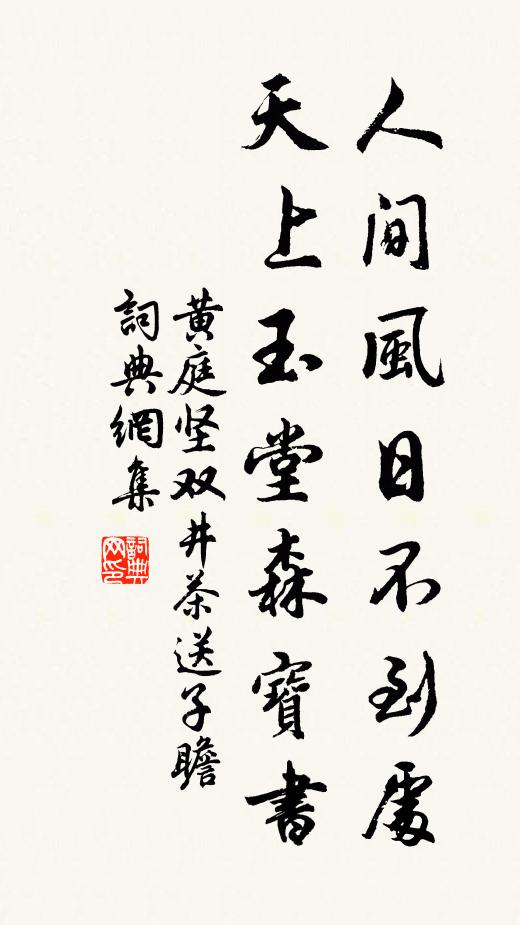 人間風日不到處
天上玉堂森寶書
黄庭坚双井茶送子瞻
詞典網集
詞典網印